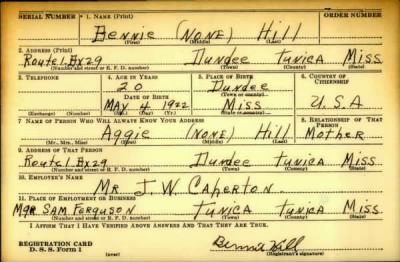 SERIAL NUMBER 1. NAME (Print) ORDER NUMBER
Bennie (None) Hill
(First) (Middle) (Last)
2. ADDRESS (Print)
Route 1. Bx 29 Dundee Tunica Miss
(Number and street or R. F. D. number) (Town) (County) (State)
3. TELEPHONE 4. AGE IN YEARS 5. PLACE OF BIRTH 6. COUNTRY OF CITIZENSHIP
20 Dundee
(Town or county)
DATE OF BIRTH
May 4 1922 Miss U.S.A
(Exchange) (Number) (Mo.) (Day) (Yr.) (State or country)
7. NAME OF PERSON WHO WILL ALWAYS KNOW YOUR ADDRESS 8. RELATIONSHIP OF THAT PERSON
Aggie (None) Hill Mother
(Mr., Mrs., Miss) (First) (Middle) (Last)
9. ADDRESS OF THAT PERSON
Route 1. Bx 29 Dundee Tunica Miss.
(Number and street or R. F. D. number) (Town) (County) (State)
10. EMPLOYER'S NAME
Mr J. W. Caperton.
11. PLACE OF EMPLOYMENT OR BUSINESS
Mgr Sam Ferguson Tunica Tunica Miss
(Number and street or R. F. D. number) (Town) (County) (State)
I AFFIRM THAT I HAVE VERIFIED ABOVE ANSWERS AND THAT THEY ARE TRUE.
REGISTRATION CARD
D. S. S. Form 1 (over) Bennie Hill
(Registrant's signature)